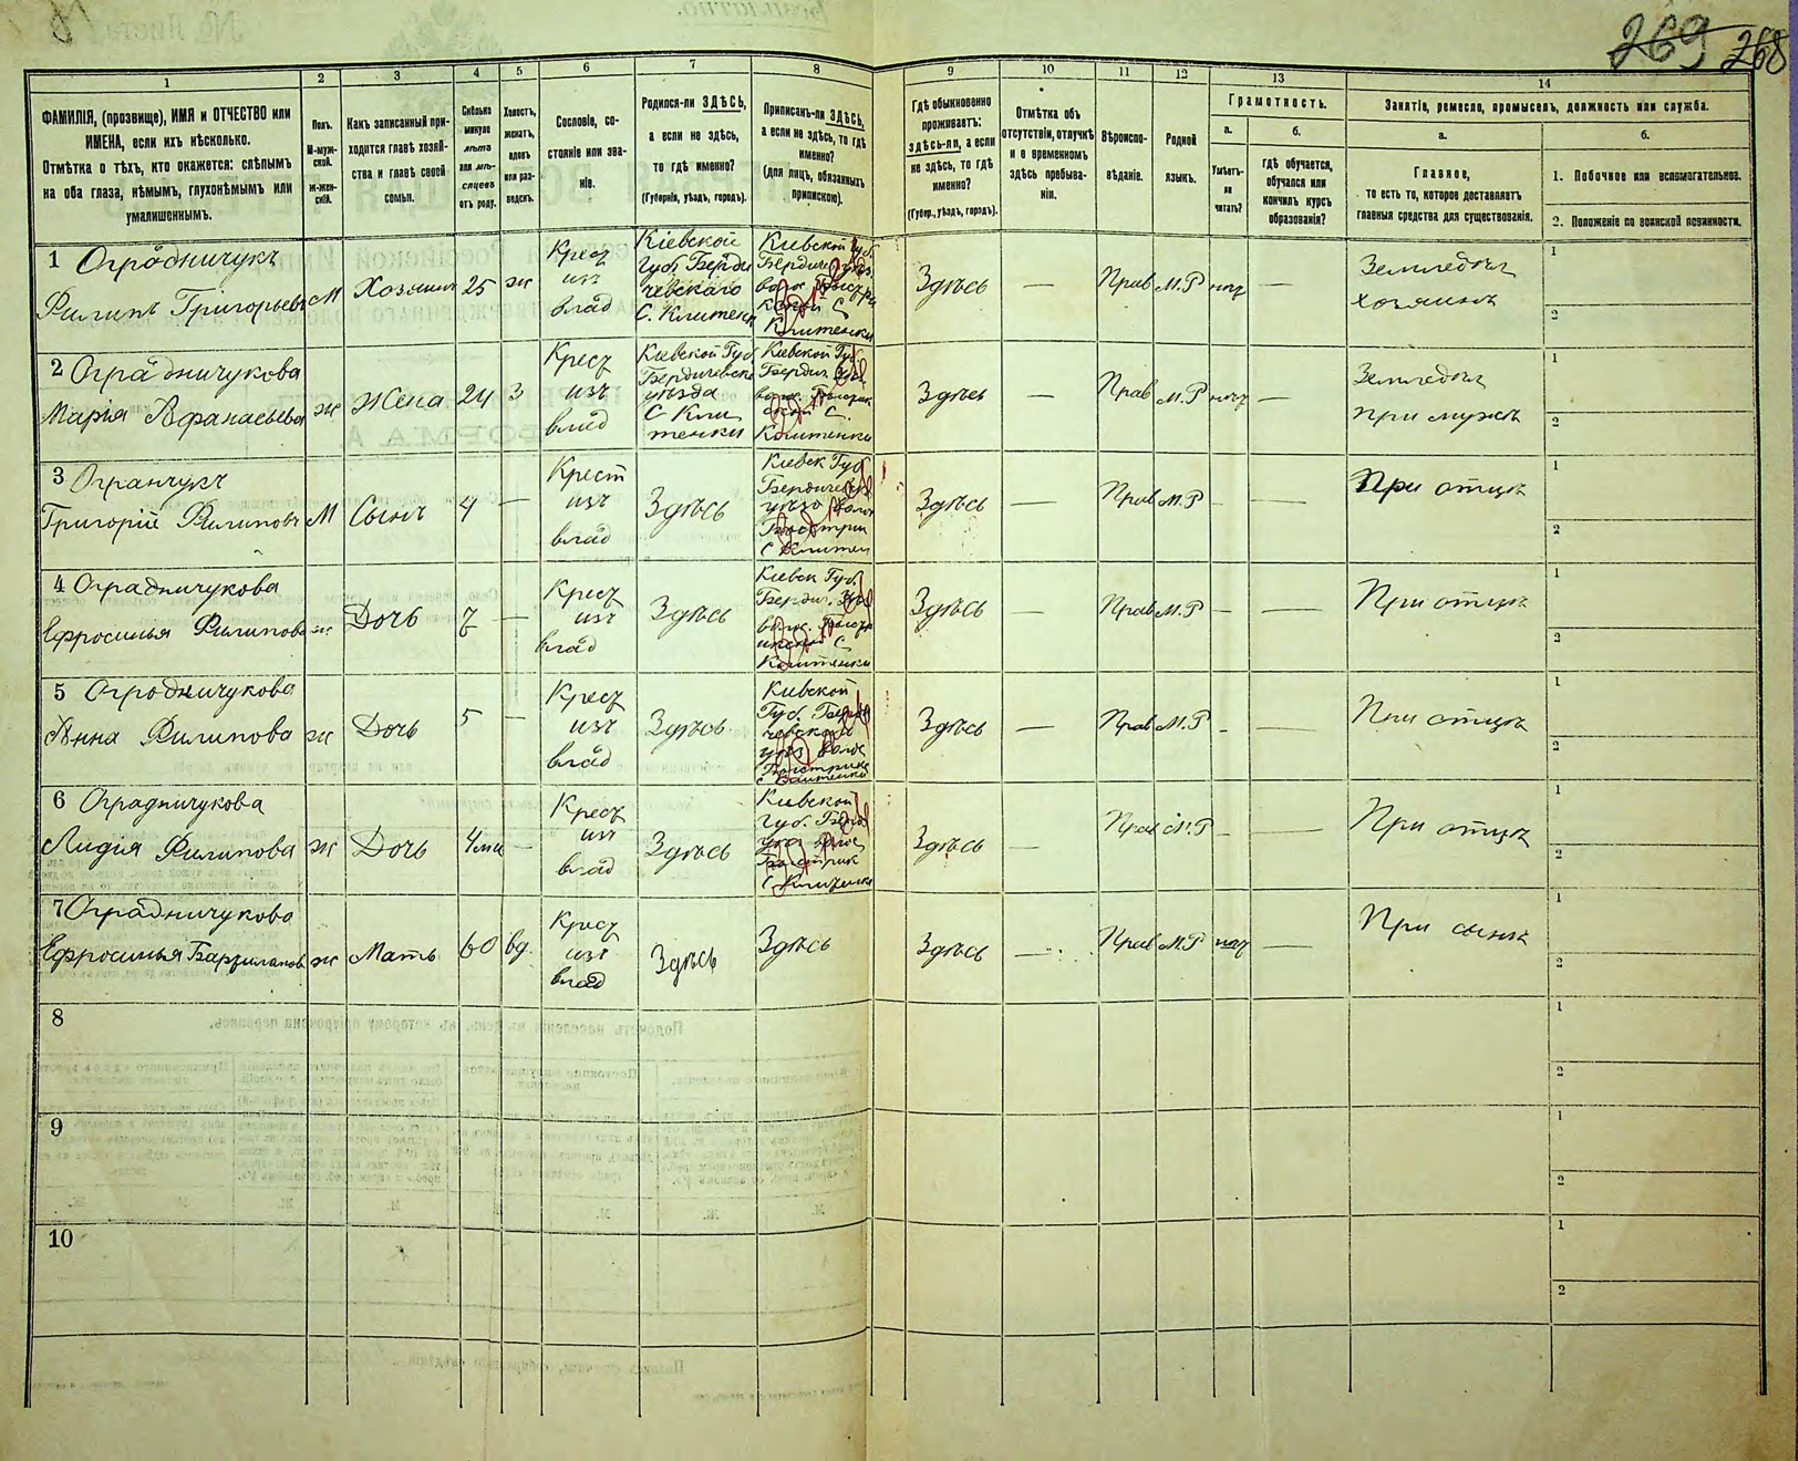 269 268
1
2
3
4
5
6
7
8
9
10
11
12
13
14
ФАМИЛІЯ, (прозвище), ИМЯ и ОТЧЕСТВО или
ИМЕНА, если ихъ нѣсколько.
Отмѣтка о тѣхъ, кто окажется: слѣпымъ
на оба глаза, нѣмымъ, глухонѣмымъ или
умалишеннымъ.
Полъ.
М-муж-
ской.
Ж-жен-
скій.
Какъ записанный при-
ходится главѣ хозяй-
ства и главѣ своей
семьи.
Сколько
минуло
лѣтъ
или мѣ-
сяцевъ
отъ роду.
Холостъ,
женатъ,
вдовъ
или раз-
веденъ.
Сословіе, со-
стояніе или зва-
ніе.
Родился-ли ЗДѢСЬ,
а если не здѣсь,
то гдѣ именно?
(Губернія, уѣздъ, городъ).
Приписанъ-ли ЗДѢСЬ,
а если не здѣсь, то гдѣ
именно?
(для лицъ, обязанныхъ
припискою).
Гдѣ обыкновенно
проживаетъ:
здѣсь-ли, а если
не здѣсь, то гдѣ
именно?
(Губер., уѣздъ, городъ).
Отмѣтка объ
отсутствіи, отлучкѣ
и о временномъ
здѣсь пребыва-
ніи.
Вѣроиспо-
вѣданіе.
Родной
языкъ.
Грамотность.
а.
б.
Умѣетъ-
ли
читать?
гдѣ обучается,
обучался или
кончилъ курсъ
образованія?
Занятіе, ремесло, промыселъ, должность или служба.
а.
б.
Главное,
то есть то, которое доставляетъ
главныя средства для существованія.
1. Побочное или вспомогательное.
2. Положеніе по воинской повинности.
1 Оградничукъ
Филипъ Григорьевъ
М
Хозяинъ
25
ж
Крест
изъ
влад
Кіевской
Губ. Берди
чевскаго
С. Клитенк
Кіевской Губ.
С
Клитенки
Здѣсь
—
Прав
М.Р
нѣт
—
Земледѣл
хозяинъ
1
2
2 Оградничукова
Марія Афанасьева
ж
Жена
24
З
Крест
изъ
влад
Кіевской Губ.
Бердичевск
уѣзда
С Кли
тенки
Кіевской Губ.
С.
Клитенки
Здѣсь
—
Прав
М.Р
нѣт
—
Земледѣл
при мужѣ
1
2
3 Огранчукъ
Григорій Филиповъ
М
Сынъ
4
—
Крест
изъ
влад
Здѣсь
Кіевск Губ
С Клитен
Здѣсь
—
Прав
М.Р
-
—
При отцѣ
1
2
4 Оградничукова
Ефросинья Филипова
ж
Дочь
7
—
Крест
изъ
влад
Здѣсь
Кіевск Губ.
С
Клитенки
Здѣсь
—
Прав
М.Р
-
—
При отцѣ
1
2
5 Огродничукова
Анна Филипова
ж
Дочь
5
—
Крест
изъ
влад
Здѣсь
Кіевской
С Клитенки
Здѣсь
—
Прав
М.Р
-
—
При отцѣ
1
2
6 Оградничукова
Лидія Филипова
ж
Дочь
4 мѣс
—
Крест
изъ
влад
Здѣсь
Кіевской
С Клитенки
Здѣсь
—
Прав
М.Р
-
—
При отцѣ
1
2
7 Оградничукова
Ефросинья
ж
Мать
60
вд.
Крест
изъ
влад
Здѣсь
Здѣсь
Здѣсь
—
Прав
М.Р
нѣт
—
При сынѣ
1
2
8
1
2
9
1
2
10
1
2